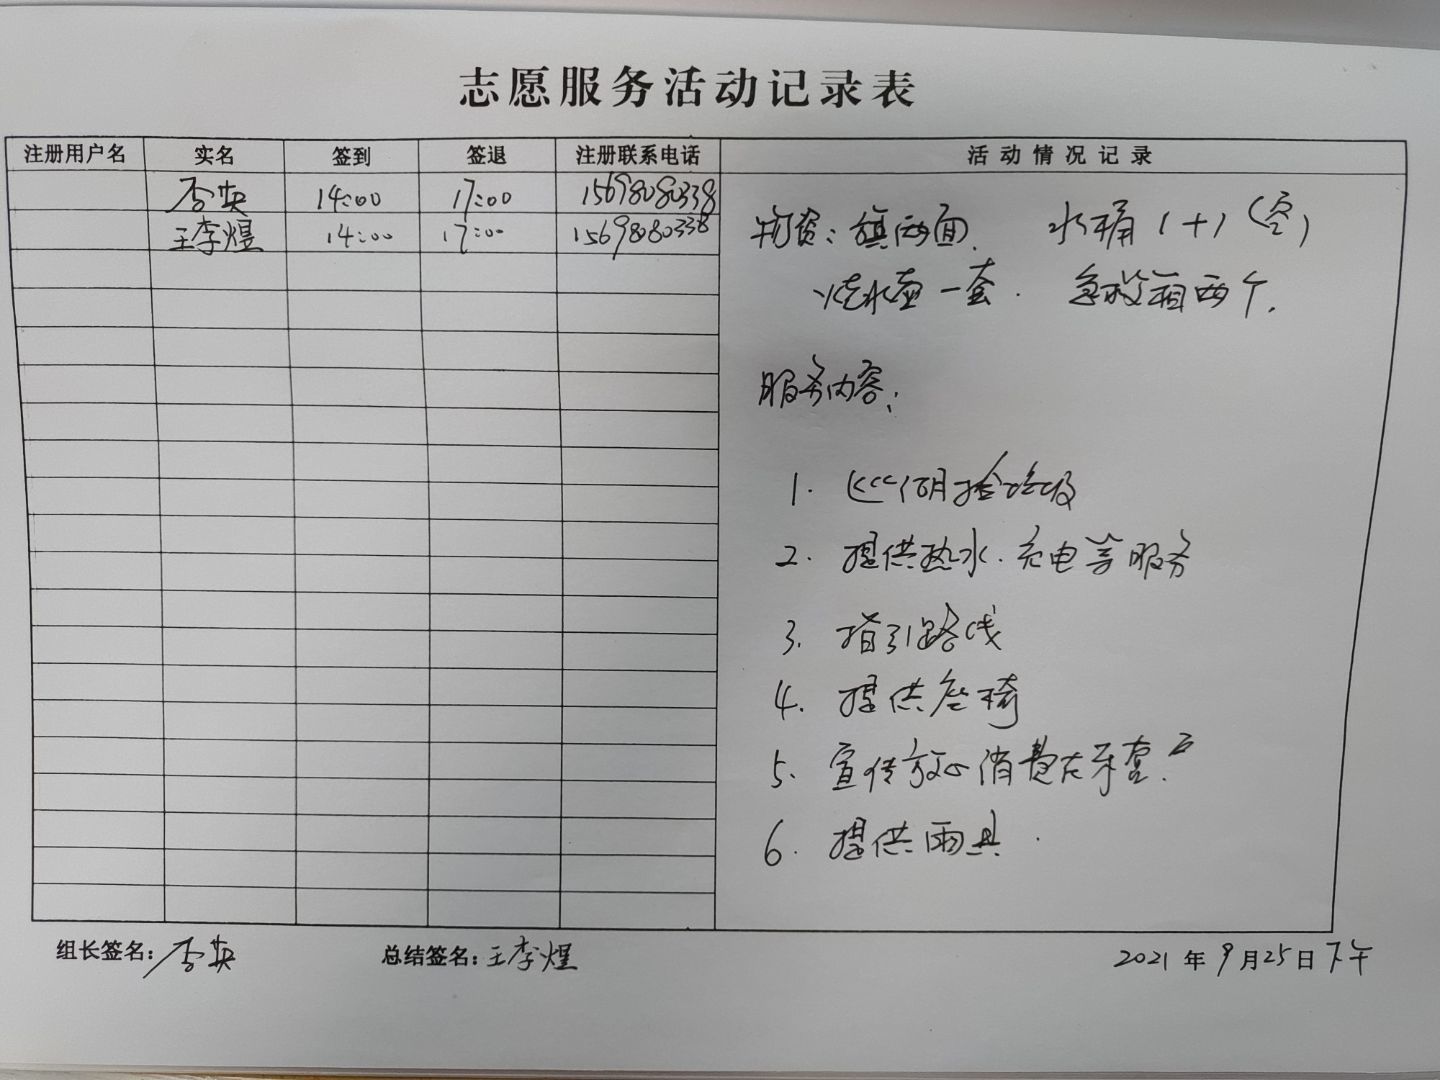 志愿服务活动记录表
注册用户名 实名 签到 签退 注册联系电话 活动情况记录
李英 14:00 17:00 15698080338
王李煜 14:00 17:00 15698080338
物资：旗两面、 水桶1+1（空）
烧水壶一套. 急救箱两个.
服务内容：
1. 捡垃圾
2. 提供热水.充电等服务
3. 指引路线
4. 提供座椅
5. 宣传放心消费在
6. 提供雨具.
组长签名：李英 总结签名：王李煜 2021年9月25日下午